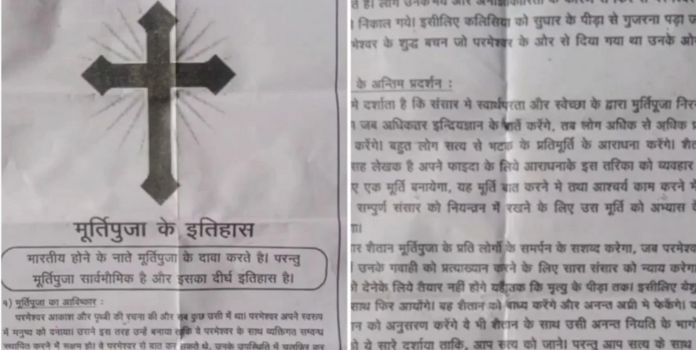 मूर्तिपुजा के इतिहास
भारतीय होने के नाते मूर्तिपुजा के दावा करते है। परन्तु
मूर्तिपुजा सार्वभौमिक है और इसका दीर्घ इतिहास है।
१) मूर्तिपुजा का आविष्कार :
परमेश्वर आकाश और पृथ्वी की रचना की और सब कुछ उसी में था। परमेश्वर अपने स्वरुप
में मनुष्य को बनाया। उसने इस तरह उन्हें बनाया ताकि वे परमेश्वर के साथ व्यक्तिगत सम्वन्ध
स्थापित करने में सक्षम हो। वे परमेश्वर से बात कर सकते थे, उनके उपस्थिति में
निकाल गये। इसीलिए कलिसिया को सुधार के पीड़ा से गुजरना पड़ा
के शुद्ध बचन जो परमेश्वर के ओर से दिया गया था उनके
के अन्तिम प्रदर्शन :
मे दर्शाता है कि संसार मे स्वार्थपरता और स्वेच्छा के द्वारा मुर्तिपूजा
जब अधिकतर इन्द्रियज्ञान के बातें करेंगे, तब लोग अधिक से अधिक
करेंगे। बहुत लोग सत्य से भटक के प्रतिमूर्ति के आराधना करेंगे।
लेखक है अपने फाइदा के लिये आराधनाके इस तरिका को व्यवहार
एक मूर्ति बनायेगा, यह मूर्ति बात करने मे तथा आश्चर्य काम करने
सम्पुर्ण संसार को नियन्त्रन में रखने के लिए उस मूर्ति को अभ्यास
शैतान मूर्तिपुजा के प्रति लोगों के समर्पन के सशब्द करेगा, जब
उनके गवाही को प्रत्याख्यान करने के लिए सारा संसार को न्याय
देनेके लिये तैयार नहीं होगे यहाँतक कि मृत्यु के पीड़ा तक। इसीलिए
साथ फिर आयोगे। वह शैतान को बाध्य करेंगे और अनन्त अग्नी मे फेकेंगे।
को अनुसरण करेंगे वे भी शैतान के साथ उसी अनन्त नियति के
ये सारे दर्शाया ताकि, आप सत्य को जाने। परन्तु आप सत्य के साथ